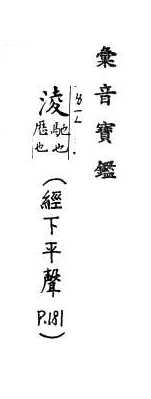 彙音寶鑑
淩 馳也 歷也 (經下平聲 P.181)